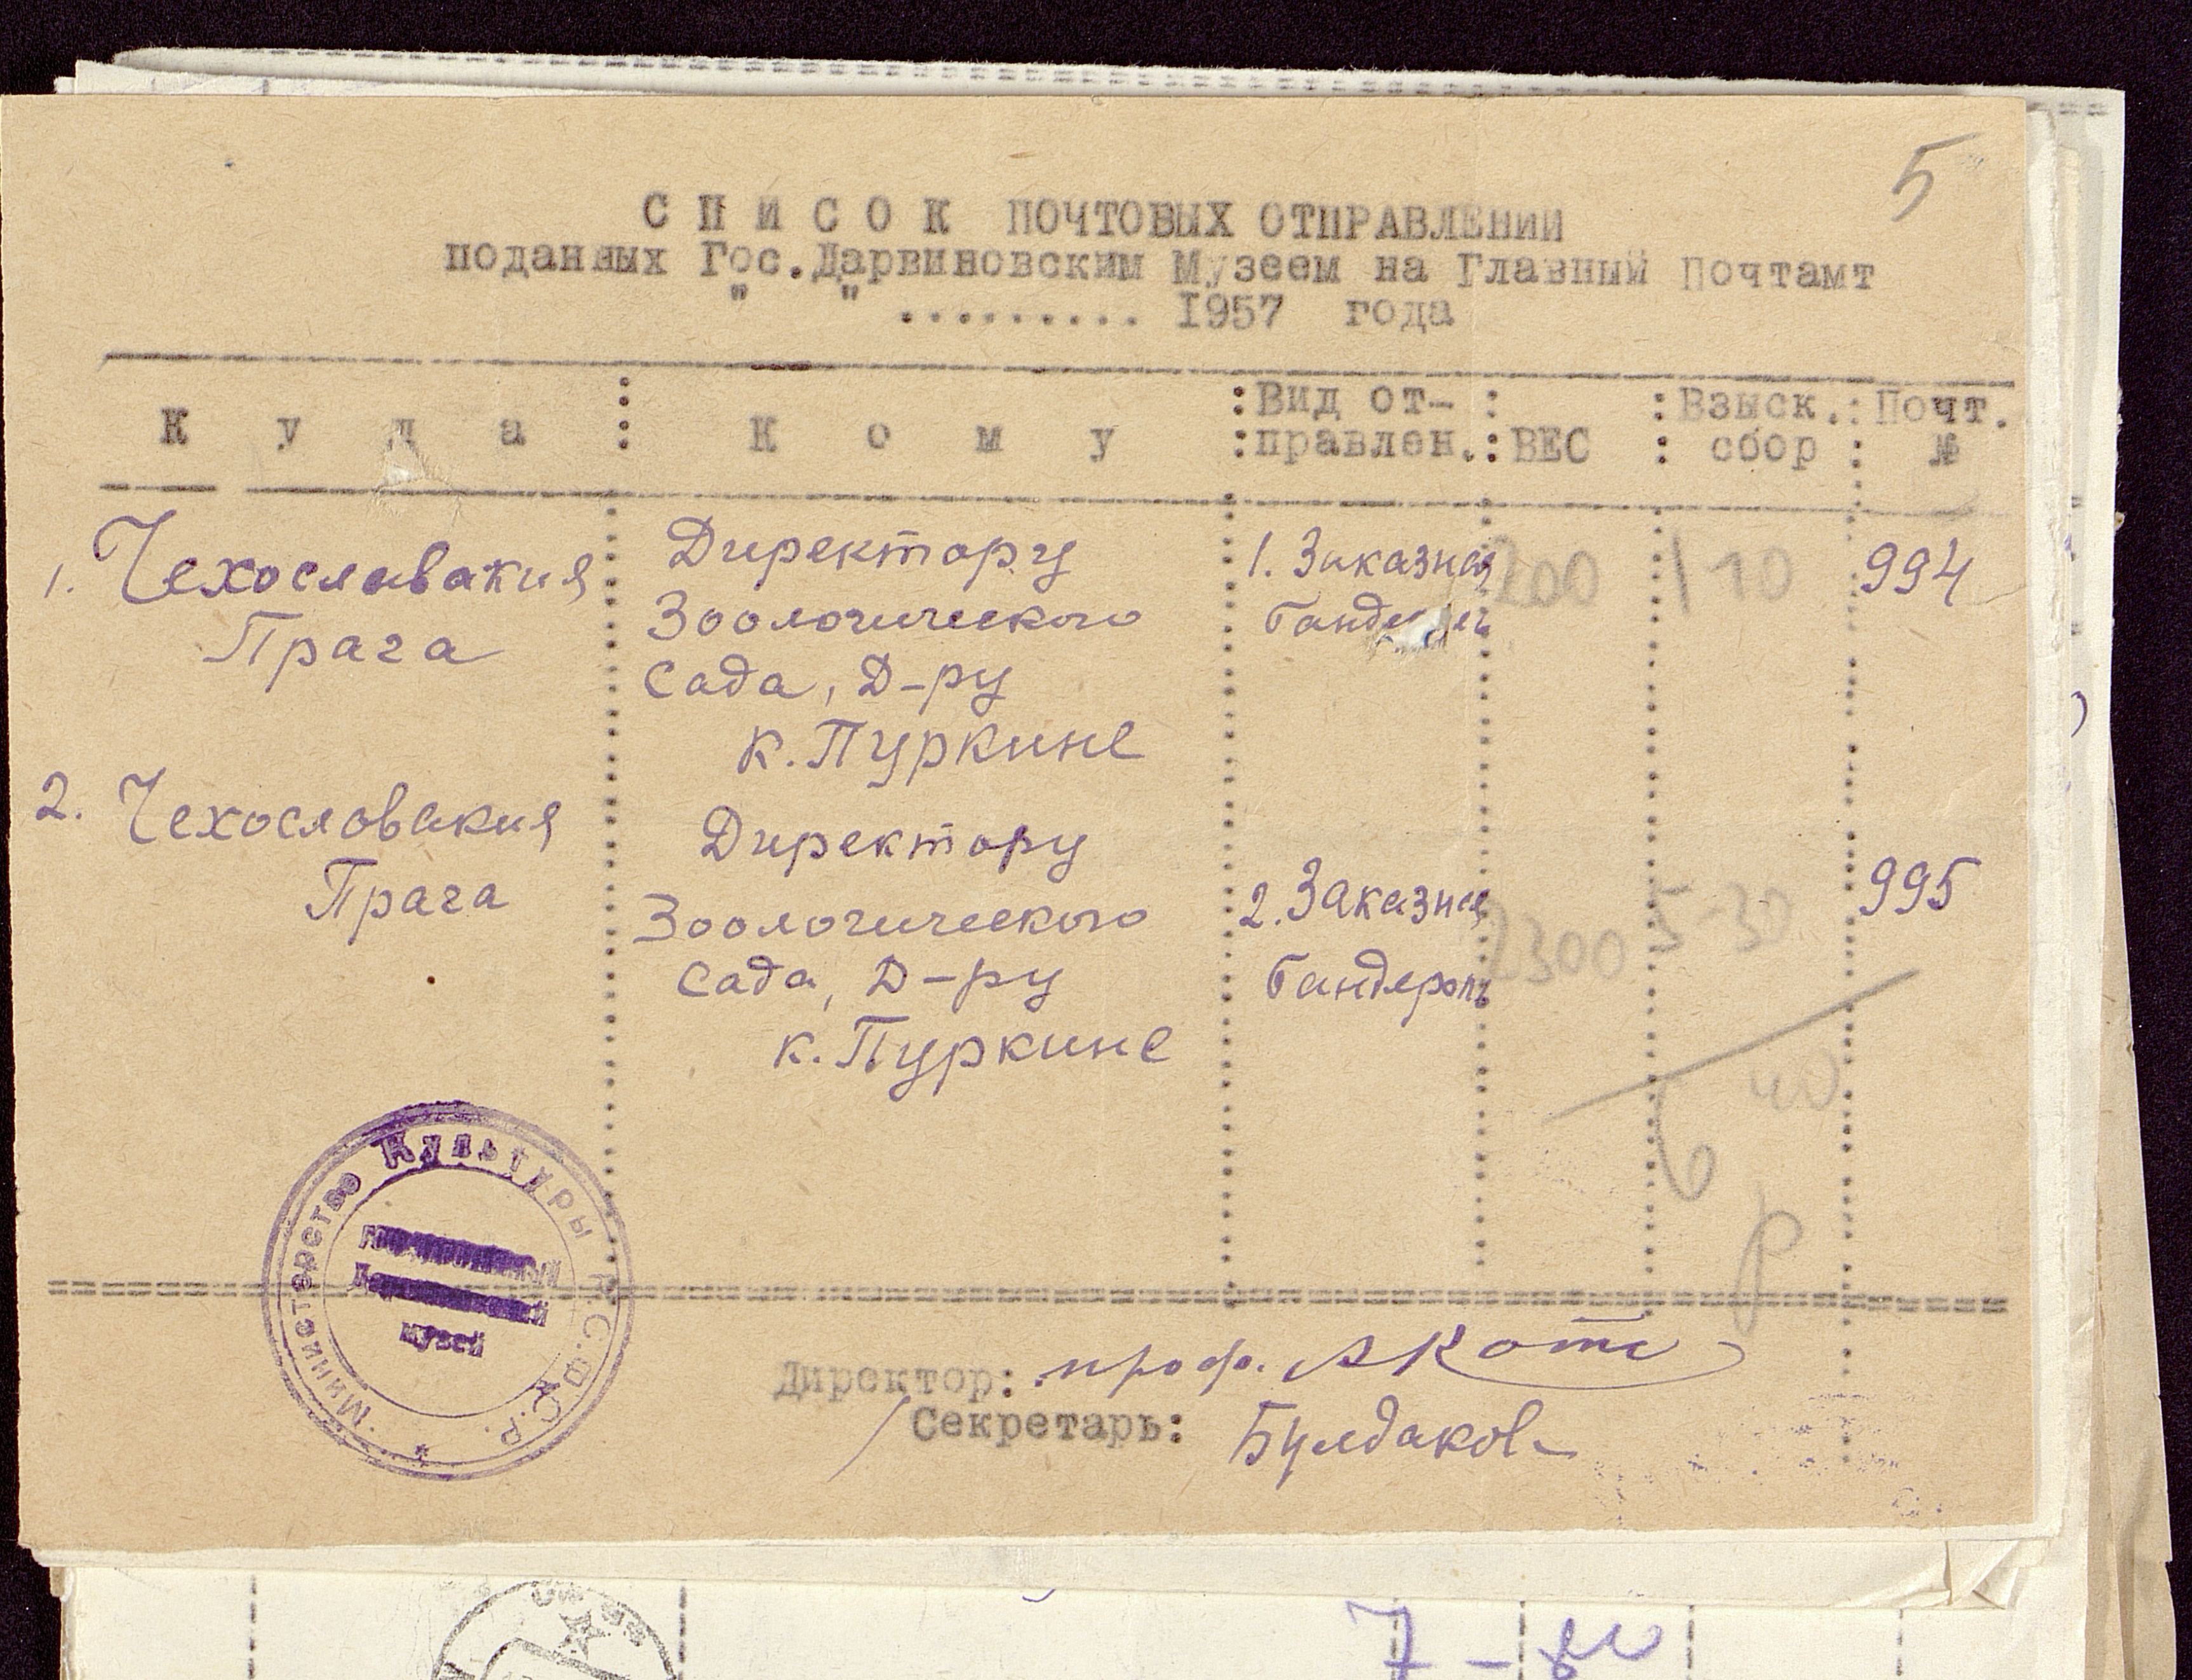 5
С П И С О К ПОЧТОВЫХ ОТПРАВЛЕНИЙ
поданных Гос.Дарвиновским Музеем на Главный Почтамт
" " .......... 1957 года
К у д а
К о м у
Вид от-
правлен.
ВЕС
Взыск.
сбор
Почт.
№
1. Чехословакия
Прага
Директору
Зоологического
Сада, Д-ру
К. Пуркине
1. Заказная
бандероль
200
1 10
994
2. Чехословакия
Прага
Директору
Зоологического
Сада, Д-ру
К. Пуркине
2. Заказная
бандероль
2300
5-30
995
6 40
р
Министерство Культуры Р.С.Ф.С.Р. *
Государственный
Дарвиновский
музей
Директор: проф. АКотс
Секретарь: Булдаков
7-80